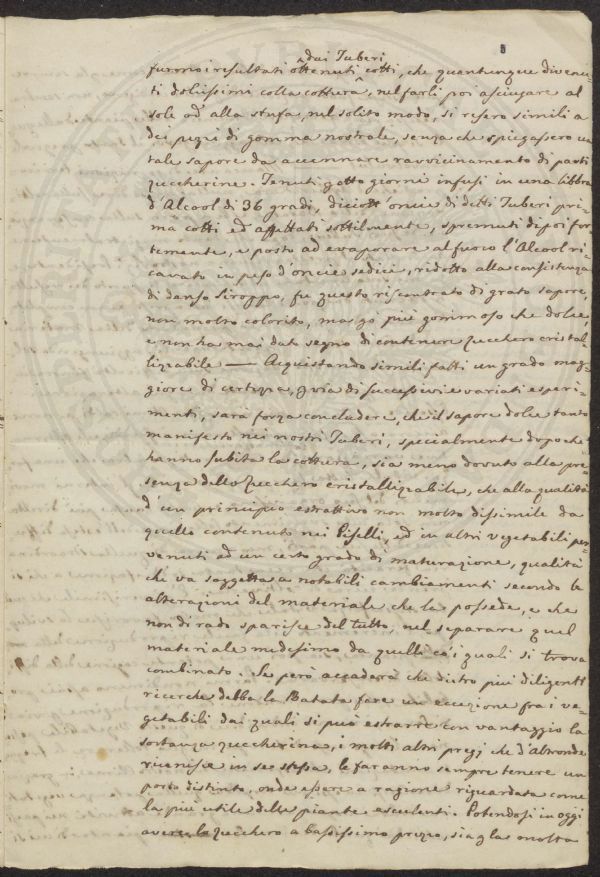 dai Tuberi
furono i resultati ottenuti cotti, che quantunque divenu-
ti dolcissimi colla cottura, nel farli poi asciugare al
sole od alla stufa, nel solito modo, si resero simili a
dei pezzi di gomma nostrale, senza che spiegassero un
tale sapore da accennare ravvicinamento di parti
zuccherine. Tenuti p otto giorni infusi in una libbra
d'Alcool di 36 gradi, diciott'oncie di detti Tuberi pri-
ma cotti ed affettati sottilmente, spremuti dipoi for-
temente, e posto ad evaporare al fuoco l'Alcool ri-
cavato in peso d'oncie sedici, ridotto alla consistenza
di denso Siroppo, fu questo riscontrato di grato sapore,
non molto colorito, ma più gommoso che dolce,
e non ha mai dato segno di contenere Zucchero cristal-
lizzabile — Acquistando simili fatti un grado mag-
giore di certezza, p via di successivi e variati esperi-
menti, sarà forza concludere, che il sapore dolce tanto
manifesto nei nostri Tuberi, specialmente dopo che
hanno subita la cottura, sia meno dovuto alla pre-
senza dello Zucchero cristallizzabile, che alla qualità
d'un principio estrattivo non molto dissimile da
quello contenuto nei Piselli, ed in altri vegetabili per-
venuti ad un certo grado di maturazione, qualità
che va soggetta a notabili cambiamenti secondo le
alterazioni del materiale che la possede, e che
non di rado sparisce del tutto, nel separare quel
materiale medesimo da quelli co' i quali si trova
combinato. Se però accaderà che dietro più diligenti
ricerche debba la Batata fare un eccezione fra i ve-
getabili dai quali si può estrarre con vantaggio la
sostanza zuccherina, i molti altri pregi che d'altronde
riunisce in se stessa, le faranno sempre tenere un
posto distinto, onde essere a ragione riguardata come
la più utile delle piante esculenti. Potendosi in oggi
avere lo zucchero a bassissimo prezzo, sia p la molta